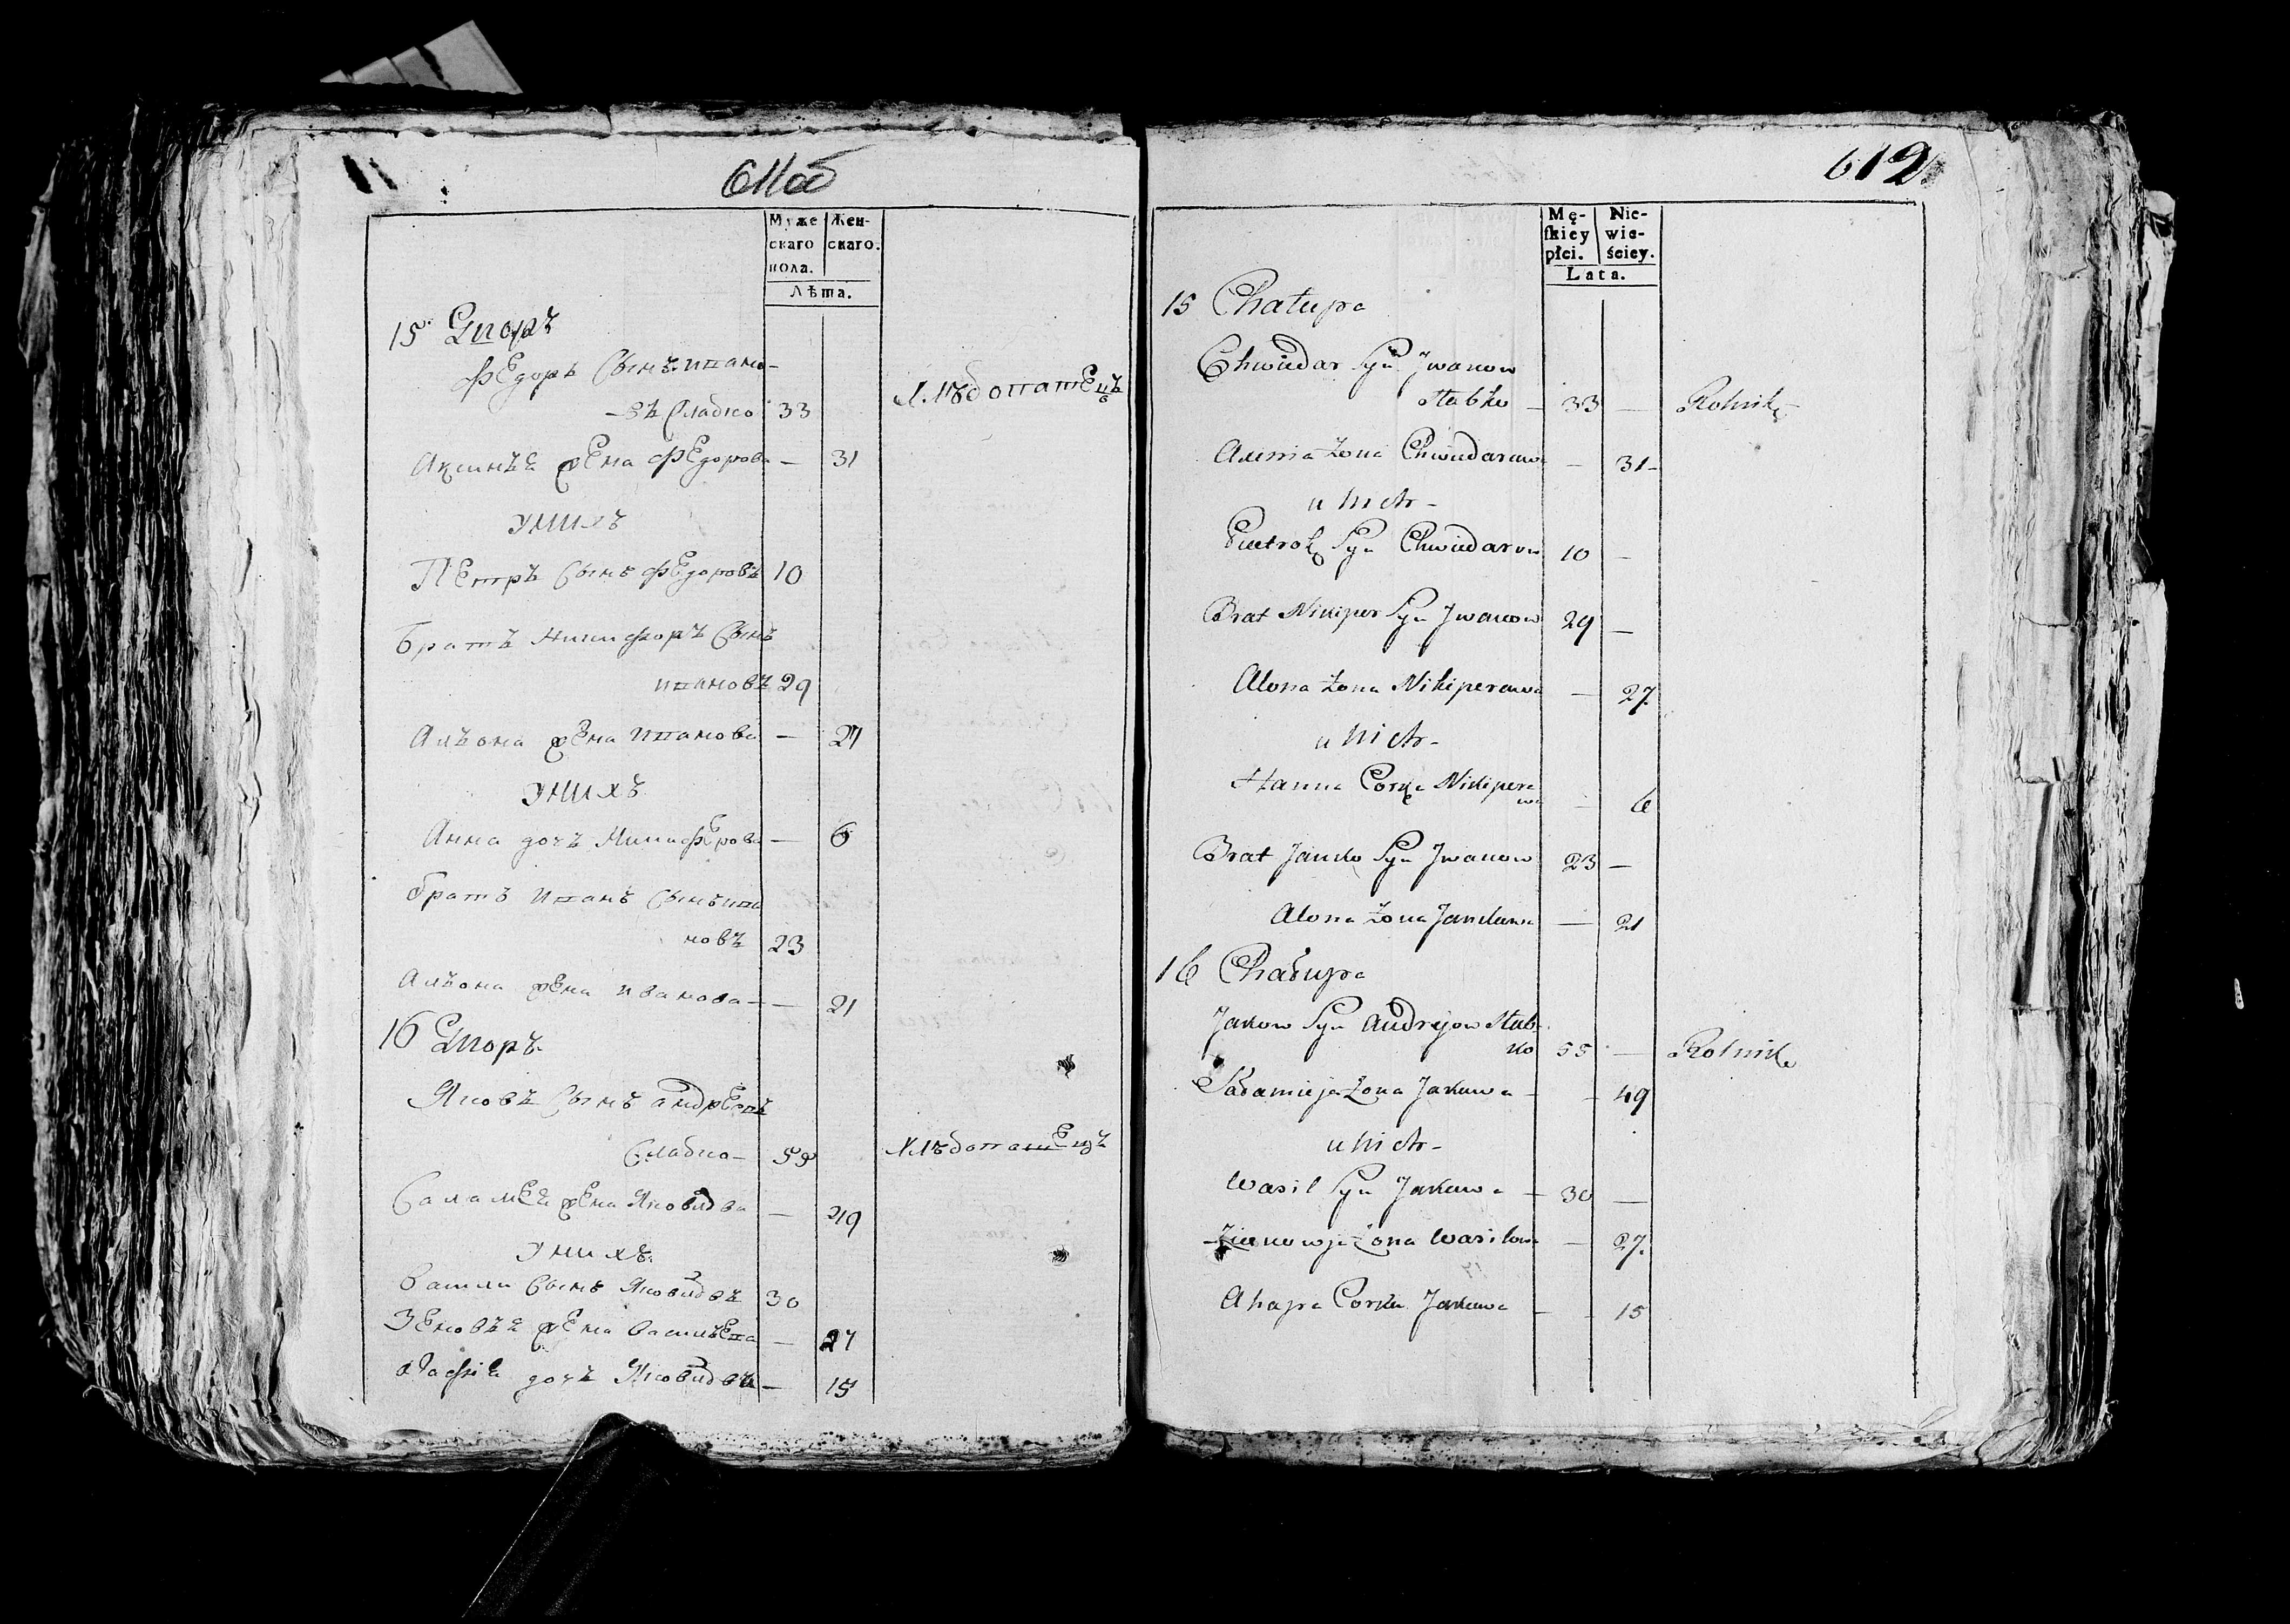 611об
Муже
скаго
пола.
Жен-
скаго.
Лѣта.
15 Дворъ
Федоръ Сынъ Ивано-
въ Слабко 33
Хлѣбопашецъ
Аксинья жена Федорова — 31
У нихъ
Петръ Сынъ Федоровъ 10
Братъ Никифоръ Сынъ
Ивановъ 29
Альона жена Иванова — 27
У нихъ
Анна дочь Никиферова — 6
Братъ Иванъ Сынъ Ива
новъ 23
Альона жена Иванова — 21
16 Дворъ
Яковъ Сынъ Андреевъ
Слабко —
Хлѣбопашецъ
Саламея жена Яковлева — 49
У нихъ
Васили Сынъ Яковлевъ 30
Зеновья жена Васильева — 27
дочь — 15
612
Mę-
skiey
płci.
Nie-
wie-
ściey.
Lata.
15 Chałupa
Chwiedar Syn Jwanow
Słabko — 33 — Rolnik
Żona Chwiedarowa — 31 -
u nich -
Pietrok Syn Chwiedarow 10 —
Brat Nikiper Syn Jwanow 29 —
Alona Żona Nikiperowa — 27.
u nich -
Hanna Corka Nikipero
wa — 6
Brat Janko Syn Jwanow 23 —
Alona Żona Jankowa — 21
16 Chałupa
Jakow Syn Andrejow Słab-
ko 55 — Rolnik
Sałamieja Żona Jakuwa - - 49
u nich -
Wasil Syn Jakuwa — 30 —
Zienowja Żona Wasilowa — 27.
Ahapa Corka Jakuwa — 15